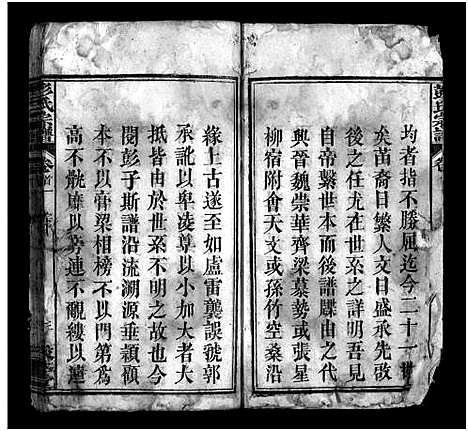 均者指不勝風迄今二十一
矣苗裔日繁人文日盛承先啟
後之任尤以世系之詳明吾見
自帝繫世本而後譜牒由之代
興晉魏崇華齊梁慕勢或張星
柳宿附會天文或孫竹空桑沿
緣上古遂至如盧雷龔誤虢郭
承訛以卑凌尊以小加大者大
抵皆由於世系不明之故也今
閱彭子斯譜沿流溯源垂穎顧
本不以膏梁相榜不以門第為
高不骫靡以旁連不覼縷以遠
彭氏宗譜
彭氏宗譜 卷首